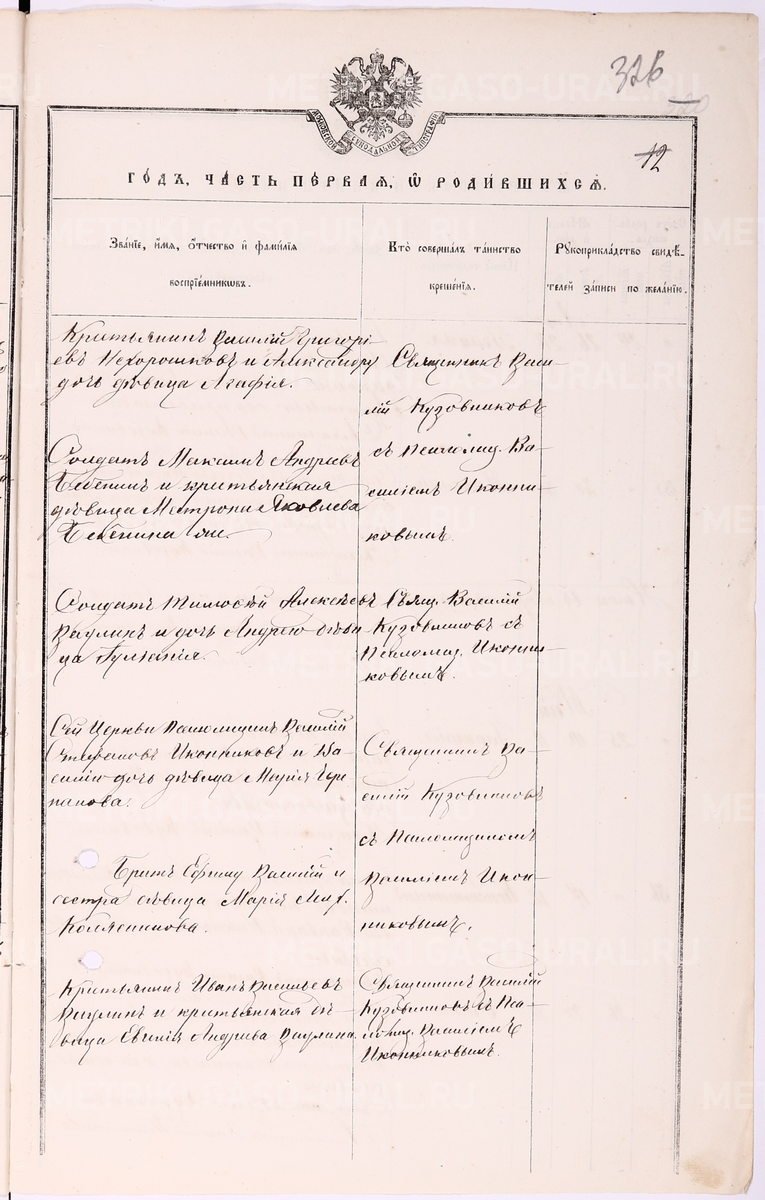 326
12
МОСКОВСКОЙ СѴНОДАЛЬНОЙ ТИПОГРАФІИ
ГО́ДЪ, ЧА́СТЬ ПЕ́РВАЯ, Ѽ РОДИ́ВШИХСЯ.
Зва́нїе, и҆́мя, ѻ҆́тчество и҆ фами́лїя
воспрїе́мникѡвъ.
Кто̀ соверша́лъ та́инство
креще́нїя.
Рꙋкоприкла́дство свидѣ́-
телей за́писи по жела́нїю.
Крестьянинъ Василій Григорі-
евъ Нехорошковъ и Александру
дочь дѣвица Агафія.
Священникъ Васи-
лій Кузовниковъ
съ псаломщ. Ва-
силіемъ Иконни-
ковымъ.
Солдатъ Максимъ Андреевъ
и крестьянская
дѣвица Матрона Яковлева
Солдатъ Тимоѳей Алексѣевъ
Ваулинъ и дочь Андрею дѣви
ца
Свящ. Василій
Кузовниковъ съ
Псаломщ. Иконни-
ковымъ.
Сей Церкви Псаломщикъ Василій
Стефановъ Иконниковъ и Ва-
силію дочь дѣвица Марія
панова.
Священникъ Ва-
силій Кузовниковъ
съ Псаломщикомъ
Василіемъ Икон-
никовымъ.
Братъ Ефиму Василій и
сестра дѣвица Марія Мих.
Крестьянинъ Иванъ Васильевъ
Ваулинъ и крестьянская дѣ-
вица Евгенія Андреева Ваулина.
Священникъ Василій
Кузовниковъ съ Пса-
ломщ. Василіемъ
Иконниковымъ.